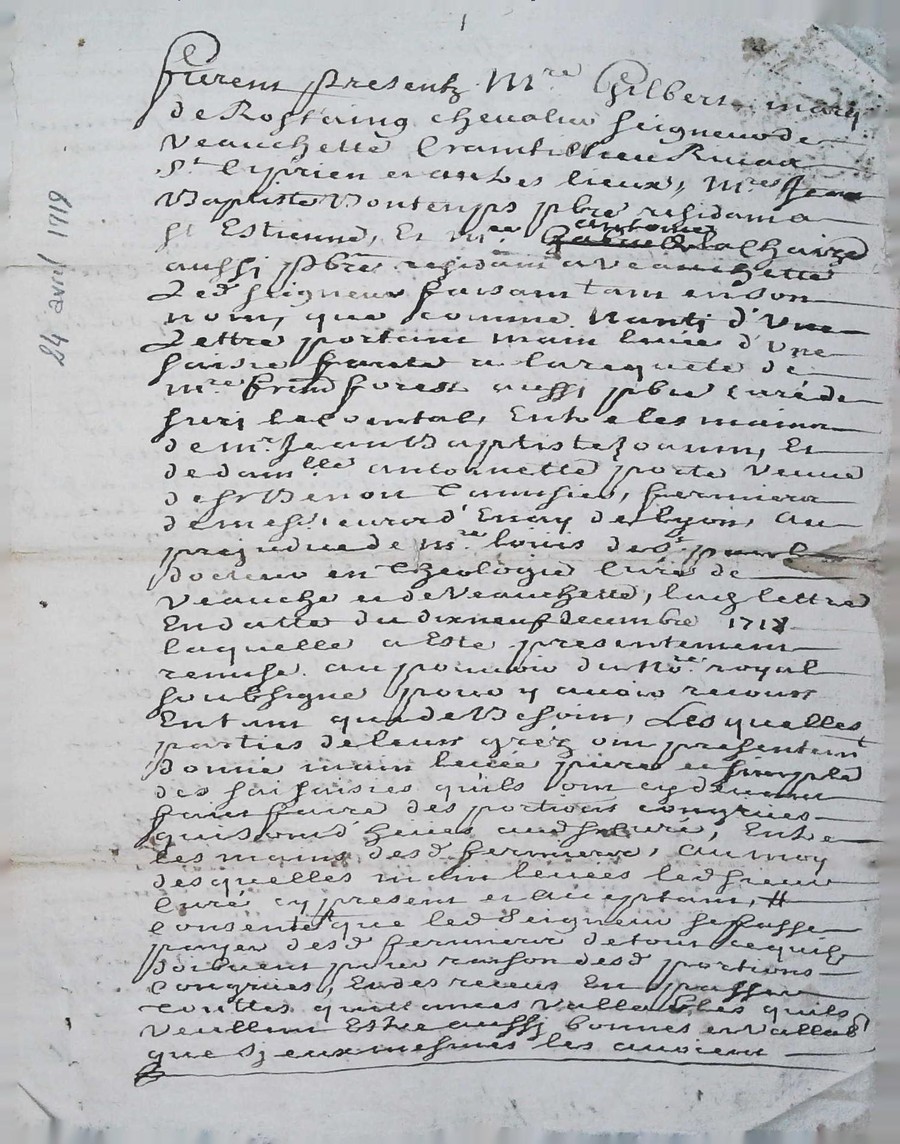 1
24 avril 1719
furent presentz Mre Gilbert marq
de Rostaing chevalier seigneur de
Veauchette Cramilieu Rivaa
St Ciprien et autres lieux, Mre Jean
Baptiste Bontemps pbre residant a
St Estienne, Et Mre antoine Lachaize
aussi pbre residant a veauchette
Led seigneur faisant tant en son
nom, que comme nanti d'Une
Lettre portant main levée d'Une
saisie faite a la requete de
mre forest aussi pbre curé de
suri le comtal, Entre les mains
de mr Jean Baptiste Joanin, Et
de damlle antoinette porte Veuve
de sr Benoit fermiers
de messieurs d'Enay de Lyon, au
prejudice de Mre louis de St paul
docteur en theologie Curé de
Veauche et de Veauchette, lad lettre
En datte du dixneuf decembre 1718
laquelle a Este presentement
remise au pouvoir du nore royal
soubsigné pour y avoir recours
En tant que de Besoin, Lesquelles
parties de leurs gréz ont presentemt
donné main levée pure et simple
des saisies qu'ils ont cy devant
fait faire des portions congrües
qui sont d'heues aud sr curé, Entre
les mains desd fermiers, au moy
desquelles main levées led sieur
Curé cy present et acceptant, #
consent que led Seigneur se fasse
payer desd fermiers de tout ce quils
doibvent pour raison desd portions
Congrues, En des receus En passer
touttes quittances vallables quils
veullent Estre aussy bonnes et vallab
que sy eux mesmes les avoient